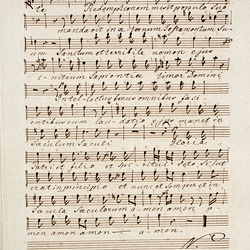 Redemptionem misit populo suo
mandavit in aeternum testamentum su
um Sanctum et terribile nomen ejus
initium Sapientiae timor Domini
Intellectus bonus omnibus faci
entibus eum laudatio ejus manet in
Saeculum Saeculi Gloria
Patri et filio et Spiritui Sicut
erat in principio et nunc et Semper et in
Saecula Saeculorum amen amen
men amen amen a men